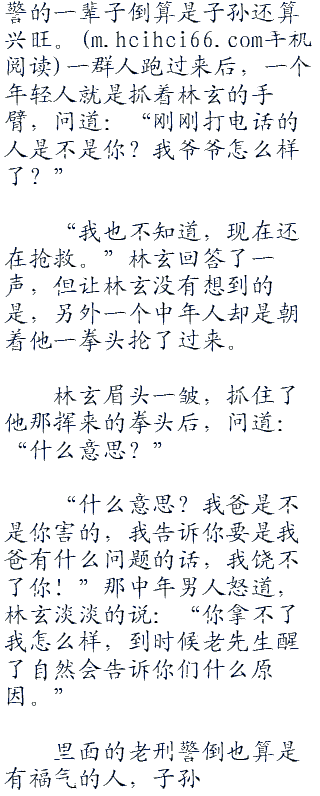 警的一辈子倒算是子孙还算
兴旺。(m.hcihci66.com手机
阅读)一群人跑过来后，一个
年轻人就是抓着林玄的手
臂，问道：“刚刚打电话的
人是不是你？我爷爷怎么样
了？”
“我也不知道，现在还
在抢救。”林玄回答了一
声，但让林玄没有想到的
是，另外一个中年人却是朝
着他一拳头抡了过来。
林玄眉头一皱，抓住了
他那挥来的拳头后，问道：
“什么意思？”
“什么意思？我爸是不
是你害的，我告诉你要是我
爸有什么问题的话，我饶不
了你！”那中年男人怒道，
林玄淡淡的说：“你拿不了
我怎么样，到时候老先生醒
了自然会告诉你们什么原
因。”
里面的老刑警倒也算是
有福气的人，子孙